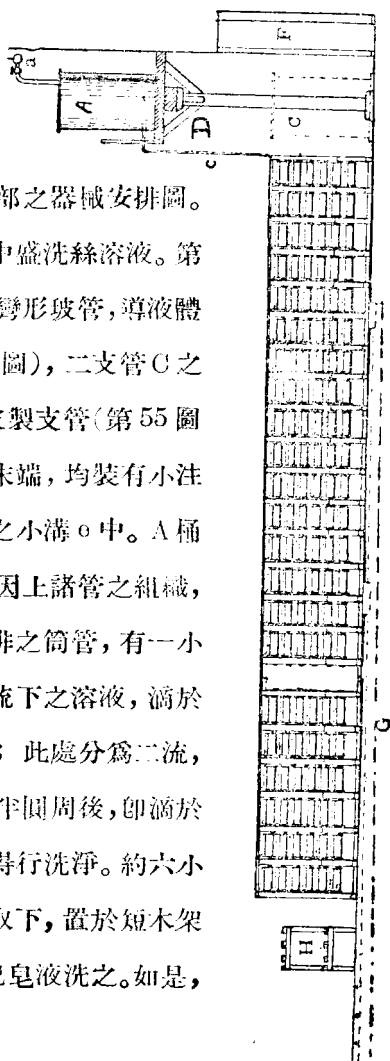 部之器械安排圖。
中盛洗絲溶液。第
彎形玻管，導液體
圖)，二支管C之
製支管(第55圖
末端，均裝有小注
之小溝e中。A桶
因上諸管之組織，
排之筒管，有一小
流下之溶液，滴於
此處分爲二流，
半圓周後，卽滴於
得行洗淨。約六小
取下，置於短木架
皂液洗之。如是，
a
A
D
c
C
F
G
H